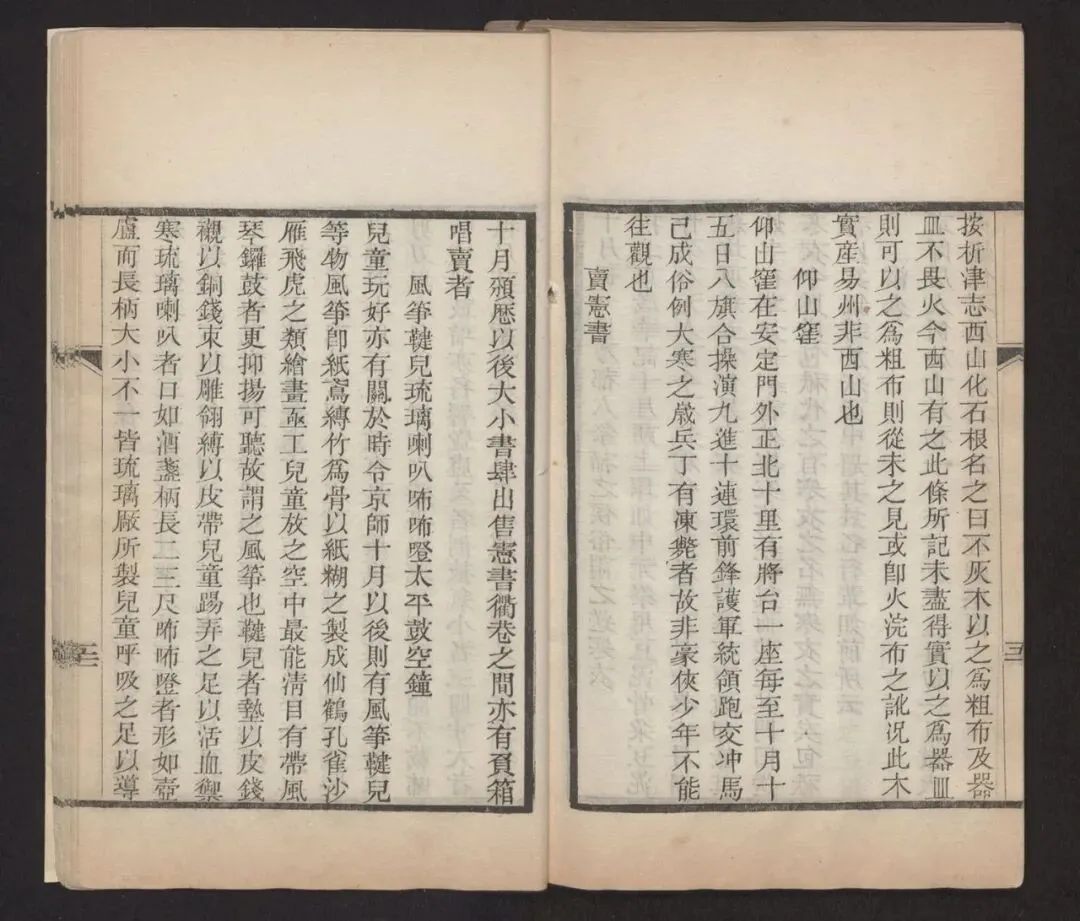 按析津志西山化石根名之曰不灰木以之爲粗布及器
皿不畏火今西山有之此條所記未盡得實以之爲器皿
則可以之爲粗布則從未之見或卽火浣布之訛況此木
實産易州非西山也
仰山窪
仰山窪在安定門外正北十里有將台一座每至十月十
五日八旗合操演九進十連環前鋒護軍統領跑交冲馬
己成俗例大寒之歲兵丁有凍斃者故非豪俠少年不能
往觀也
賣憲書
十月頒歷以後大小書肆出售憲書衢巷之間亦有負箱
唱賣者
風箏毽兒琉璃喇叭咘咘噔太平鼓空鐘
兒童玩好亦有關於時令京師十月以後則有風箏毽兒
等物風箏卽紙鳶縛竹爲骨以紙糊之製成仙鶴孔雀沙
雁飛虎之類繪畫亟工兒童放之空中最能淸目有帶風
琴鑼鼓者更抑揚可聽故謂之風箏也毽兒者墊以皮錢
襯以銅錢束以雕翎縛以皮帶兒童踢弄之足以活血禦
寒琉璃喇叭者口如酒盞柄長二三尺咘咘噔者形如壺
盧而長柄大小不一皆琉璃厰所製兒童呼吸之足以導